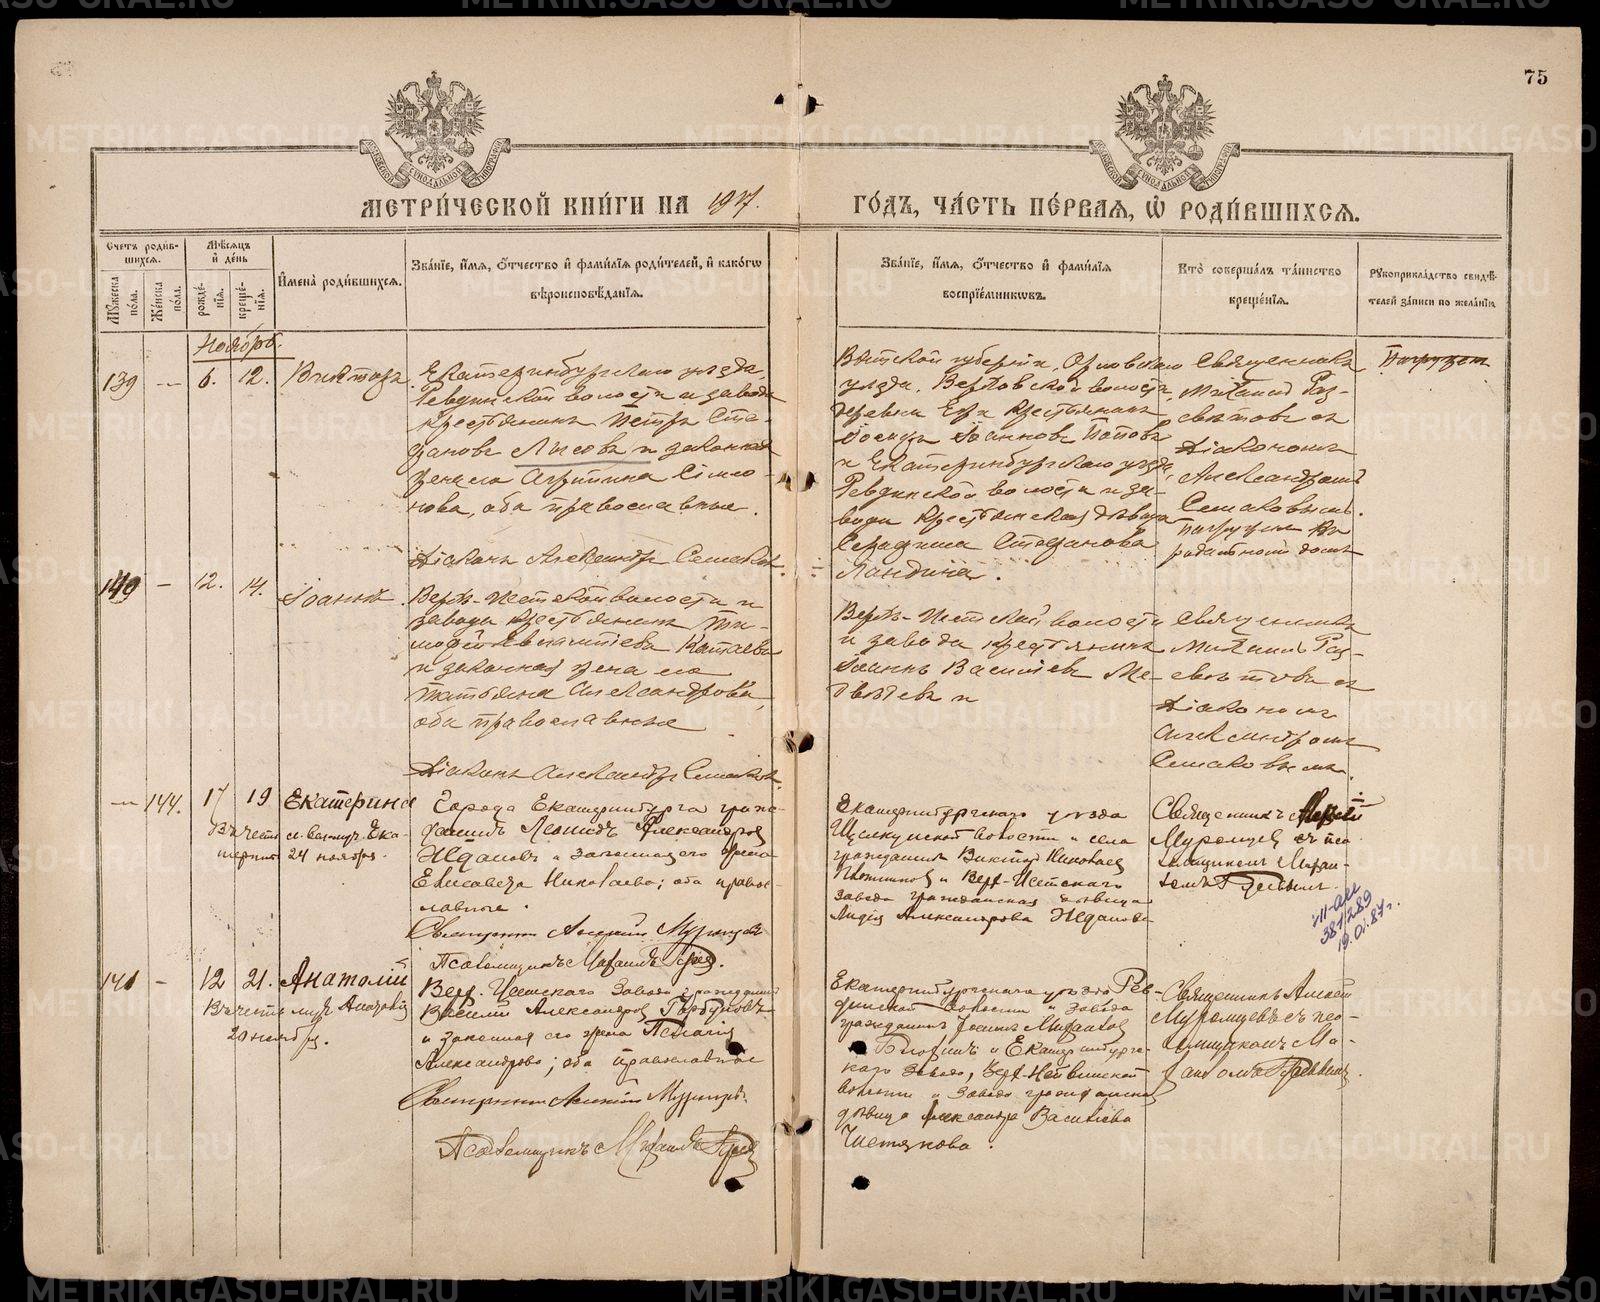 75
МЕТРИ́ЧЕСКОЙ КНИ́ГИ НА 1917. ГО́ДЪ, ЧА́СТЬ ПЕ́РВАЯ, Ѡ РОДИ́ВШИХСЯ.
Счетъ роди́в-
шихся.
Му́жеска по́ла.
Же́нска по́ла.
Мѣ́сяцъ
и де́нь
рожде́-
нія.
креще́-
нія.
Имена̀ роди́вшихся.
Зва́ніе, и́мя, о́тчество и фами́лія роди́телей, и како́гѡ
вѣроисповѣ́данія.
Зва́ніе, и́мя, о́тчество и фами́лія
воспріе́мникѡвъ.
Кто̀ соверша́лъ та́инство
креще́нія.
Рукоприкла́дство свидѣ́-
телей за́писи по жела́нію
Ноябрь.
139 — 6. 12. Викторъ
Екатеринбургскаго уѣзда
Ревдинской волости и завода
крестьянинъ Петръ Сте-
фановъ Лисовъ и законная
жена его Агрипина Симео-
нова, оба православные.
Діаконъ Александръ Семаковъ.
Вятской губерніи, Орловскаго
уѣзда, Верховской волости,
деревни крестьянинъ
Іоаннов Поповъ
и Екатеринбургскаго уѣзда,
Ревдинской волости и за-
вода крестьянская дѣвица
Серафима Стефанова
Ландина.
Священникъ
Михаилъ Раз-
свѣтовъ съ
діакономъ
Александромъ
Семаковымъ.
Погружен въ
родительском домѣ
Погружен
140 — 12. 14. Іоаннъ
Верхъ-Исетской волости и
завода крестьянинъ Ти-
мофей Катаевъ
и законная жена его
Татьяна Александрова,
оба православные
Діаконъ Александръ Семаковъ.
Верхъ-Исетской волости
и завода крестьянинъ
Іоаннъ Васильевъ Ме-
Священникъ
Михаилъ Раз-
свѣтовъ съ
діакономъ
Александромъ
Семаковымъ.
— 144. 17 19 Екатерина
Въ честь св. велмуч. Ека-
терины 24 ноября.
Города Екатеринбурга граж-
данинъ Леонидъ Александров
Ждановъ и законная его жена
Елисавета Николаева; оба правос-
лавные.
Священник Алексий Муромцев
Псаломщикъ Михаилъ
Екатеринбургскаго уѣзда
Щелкунской волости и села
гражданин Виктор Николаев
и Верх-Исетскаго
завода гражданская дѣвица
Лидія Александрова Жданова
Священникъ Алексій
Муромцев съ пса-
ломщикомъ Михаи-
ломъ
381/289
19.01.87г.
141 — 12 21. Анатолій
Въ честь муч. Анатолія
20 ноября.
Верх. Исетскаго завода гражданинъ
Василій Александров Горбуновъ
и законная его жена Пелагія
Александрова; оба православные
Священник Алексий Муромцев.
Псаломщикъ Михаилъ
Екатеринбургскаго уѣзда Рев-
динской волости и завода
гражданинъ Михаилов
и Екатеринбургс-
каго уѣзда, Верх-Нейвинской
волости и завода гражданская
дѣвица Александра Васильева
Чистякова.
Священникъ Алексій
Муромцевъ съ пса-
ломщикомъ Ми-
хаиломъ
METRIKI.GASO-URAL.RU